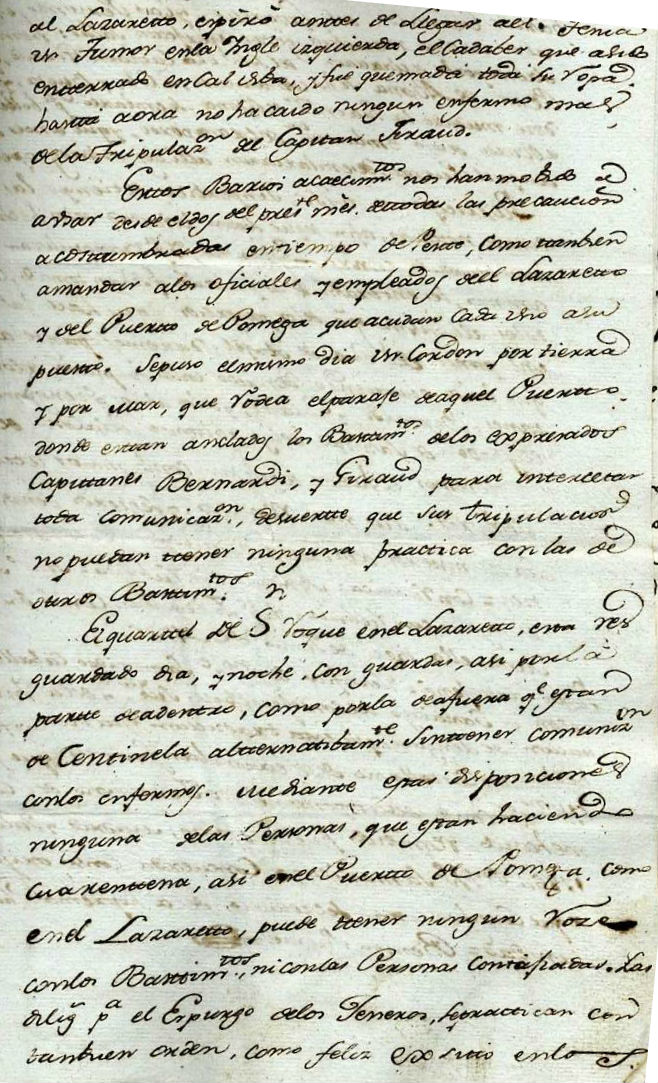 al Lazaretto, espiró antes de llegar ael. Tenia
un Tumor enla Ingle izquierda, el Cadaber que asido
enterrado en Cal viba, y fue quemada toda su Ropa.
hasta aora no ha caido ningun enfermo mas,
dela Tripulazon del Capitan Giraud.
Estos Barios acaecimtos nos han mobido a
avsar desde el dos del preste mes. detodas las precaucion
acostumbradas entiempo de Peste, como tanbien
amandar alos oficiales y empleados dell Lazaretto
y del Puerto de Pomega que acudan cada uno asu
puesto. Sepuso elmismo dia un Cordon por tierra
y por Mar, que Rodea elparaje deaquel Puerto.
donde estan anclados los Bastimtos delos expresados
Capitanes Bernardi, y Giraud para intercetar
toda comunicazon, desuerte que sus tripulacios
no puedan ttener ninguna practica con las de
otros Bastimtos.
El quartel de S Roque enel Lazaretto, esta res
guardado dia, y noche, con guardas, asi por la
parte deadentro, como porla deafuera qe estan
de Centinela alternatibamte Sinttener comunizon
conlos enfermos. Mediante estas disposiciones
ninguna delas Personas, que estan haciendo
Cuarentena, asi enel Puerto de Pomega, como
enel Lazaretto, puede ttener ningun Roze
conlos Bastimtos, niconlas Personas Contajiadas. Las
dilig pa el Espurgo delos Jeneros, sepractican con
tanbuen orden, como feliz exsito enlo S.